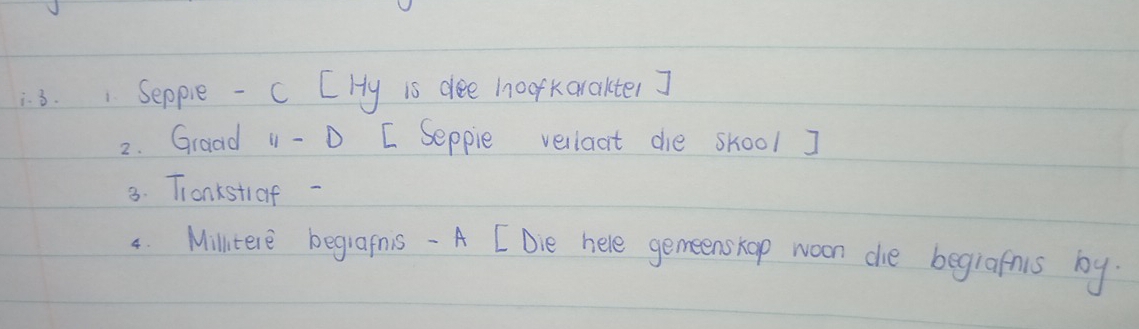 1.3. 1. Seppie - C [ Hy is dee hoofkarakter ]
2. Graad 11 - D [ Seppie verlaat die skool ]
3. Tronkstraf -
4. Milliterê begrafnis - A [ Die hele gemeenskap woon die begrafnis by.